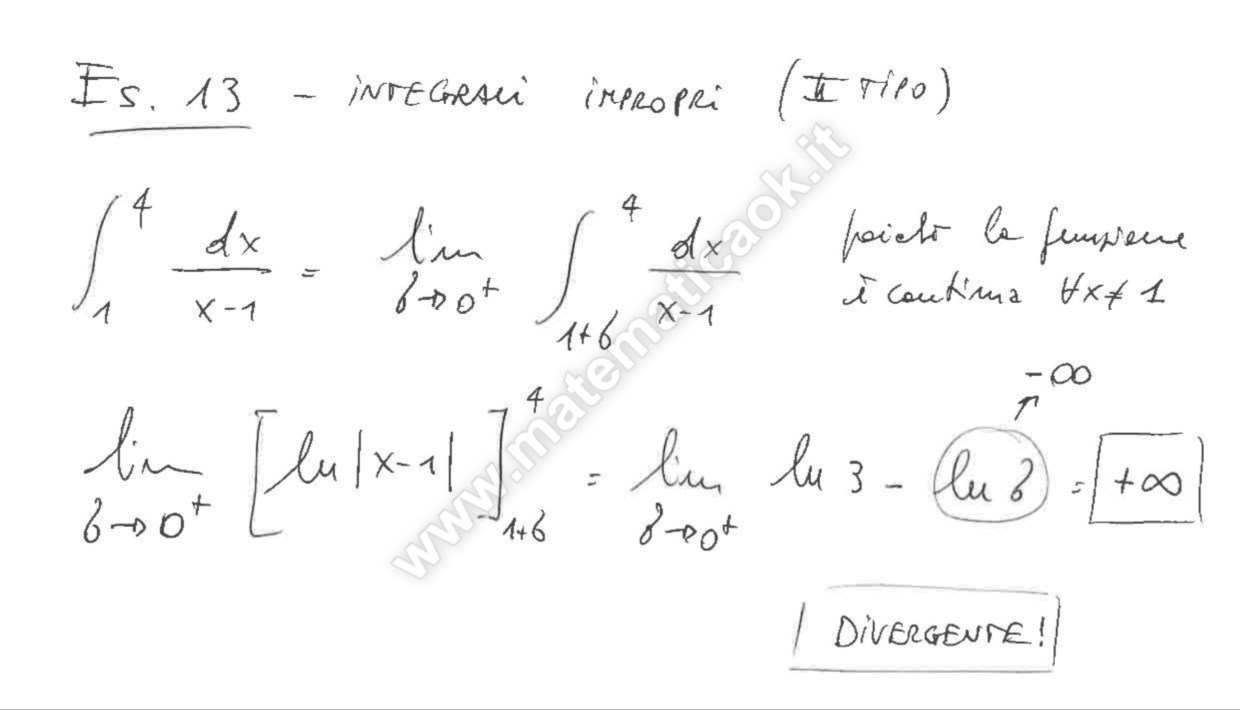 Es. 13 - INTEGRALI IMPROPRI (II TIPO)
∫₁⁴ dx/(x-1) = lim_{δ→0⁺} ∫_{1+δ}⁴ dx/(x-1) poiché la funzione
è continua ∀x≠1
lim_{δ→0⁺} [ln|x-1|]_{1+δ}⁴ = lim_{δ→0⁺} ln 3 - ln δ = +∞
-∞
DIVERGENTE!
www.matematicaok.it